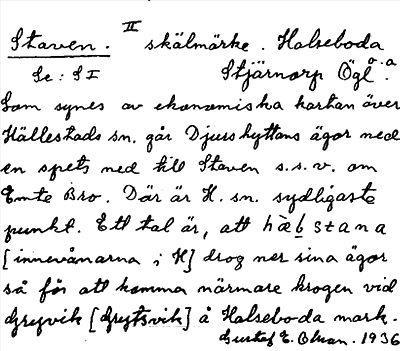 Staven. II skälmärke. Halseboda
Se: S I Stjärnorp Ögl. ö.a.
Som synes av ekonomiska kartan över
Hällestads sn. går Djurshyttans ägor ned
en spets ned till Staven s.s.v. om
Emte Bro. Där är H. sn. sydligaste
punkt. Ett tal är, att hæbstana
[innevånarna i H] drog ner sina ägor
så för att komma närmare krogen vid
Grytvik [Grytsvik] å Halseboda mark.
Gustaf E. Olsson. 1936